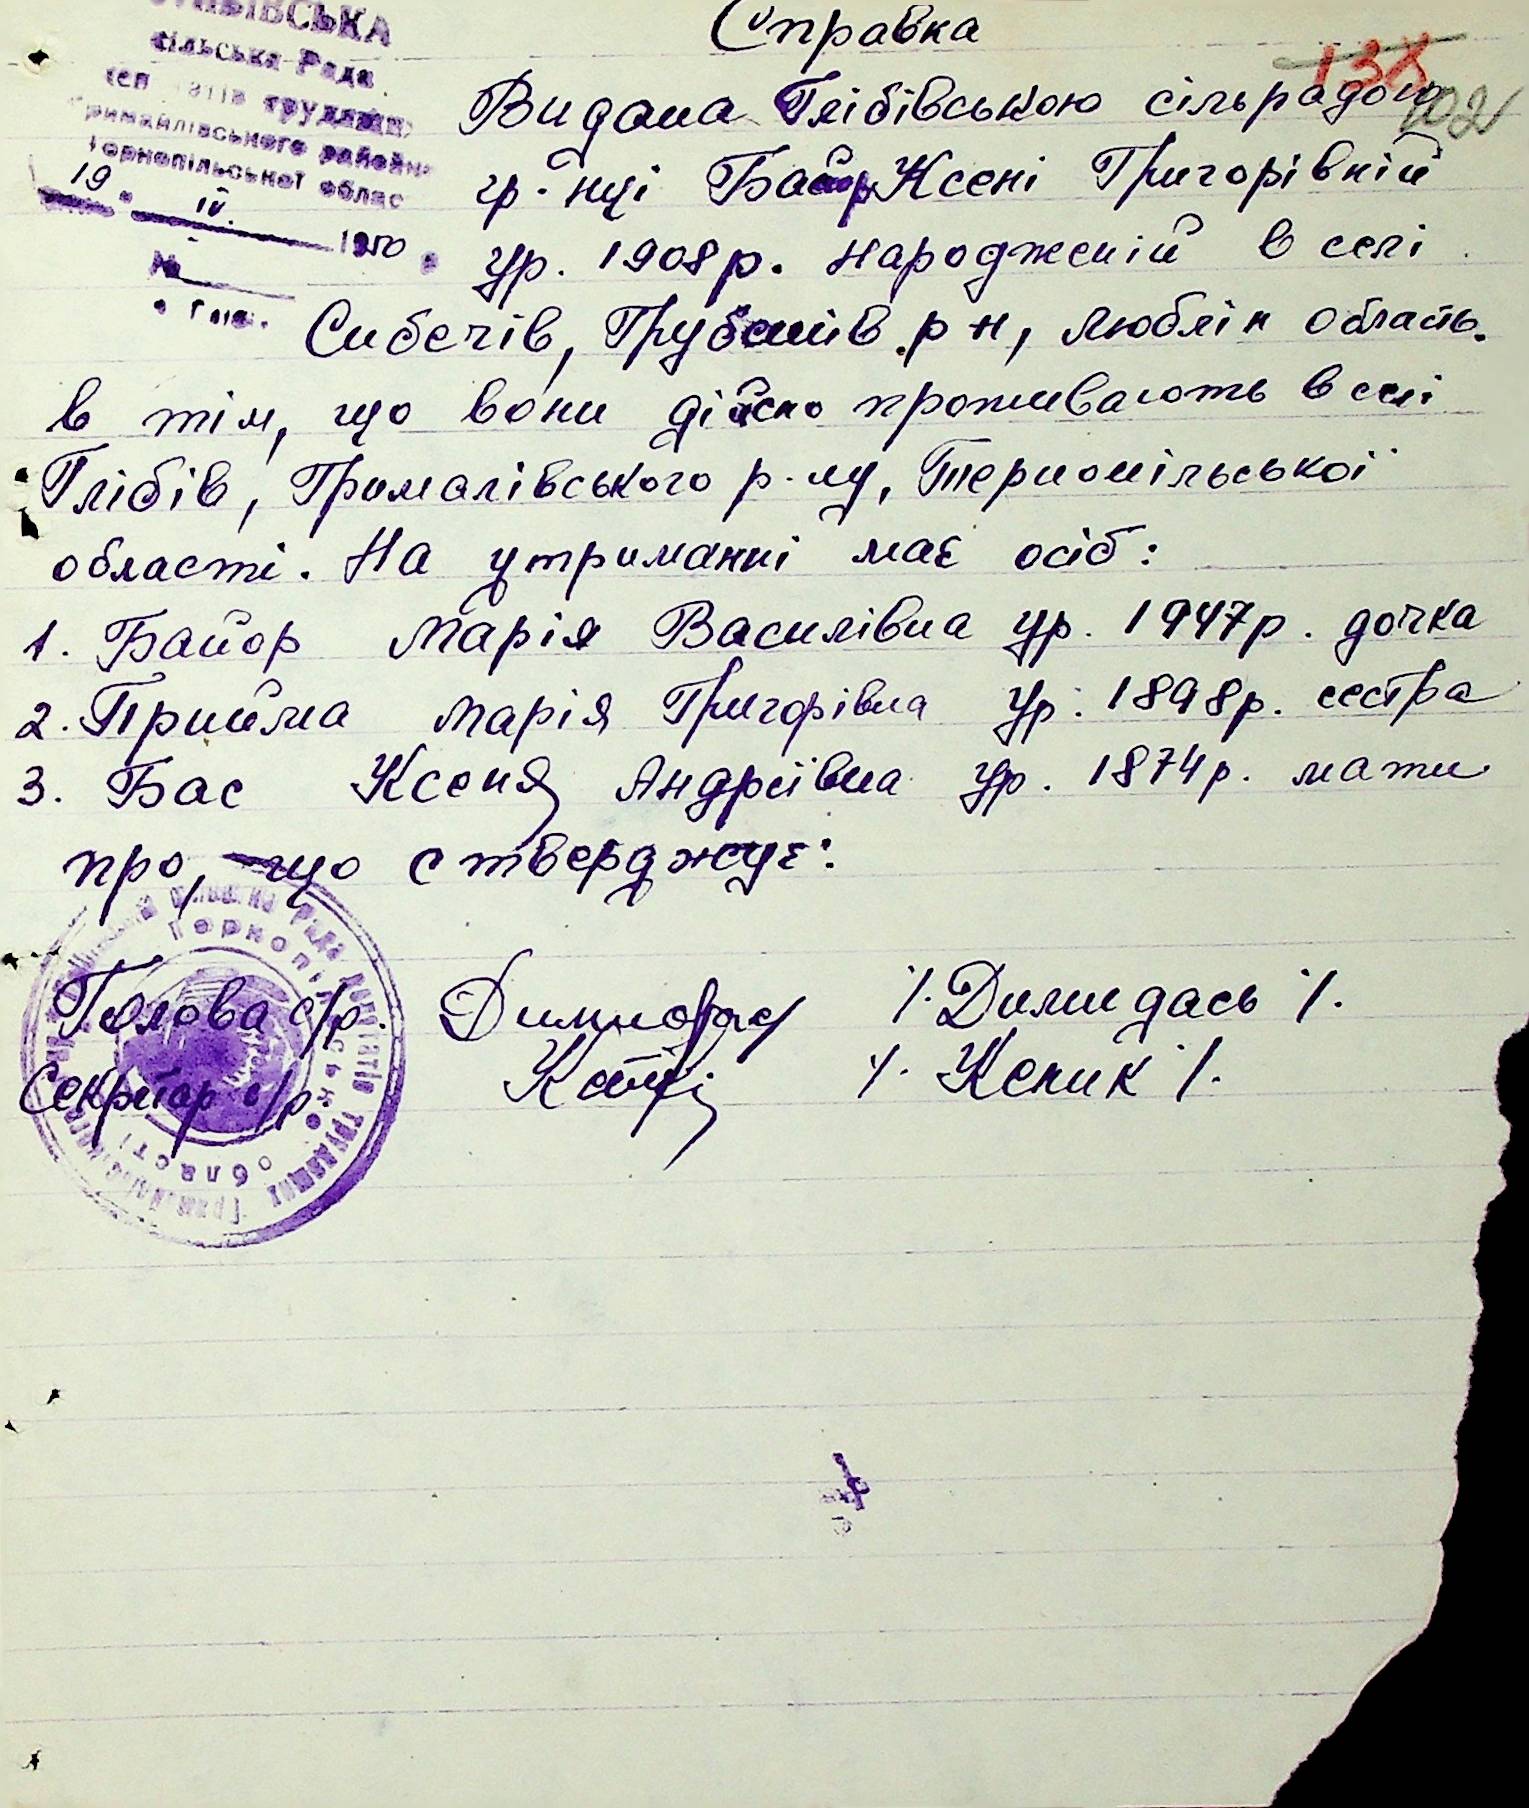 Справка
сільська Рада
трудящих
Гримайлівського районн
Тернопільської облас
19 IV. 1950
№
Видана Глібівською сільрадою
гр-нці Байор Ксені Григорівній
ур. 1908 р. народженій в селі
Сибечів, Грубешів р-н, Люблін область.
в тім, що вони дійсно проживають в селі
Глібів, Грималівського р-ну, Тернопільської
області. На утриманні має осіб:
1. Байор Марія Василівна ур. 1947р. дочка
2. Прийма Марія Григорівна ур. 1898р. сестра
3. Бас Ксеня Андріївна ур. 1874р. мати
про, що стверджує:
Голова с/р. /. Димидась /.
Секретар с/р. /. Кепик /.
Тернопільської області
138
102